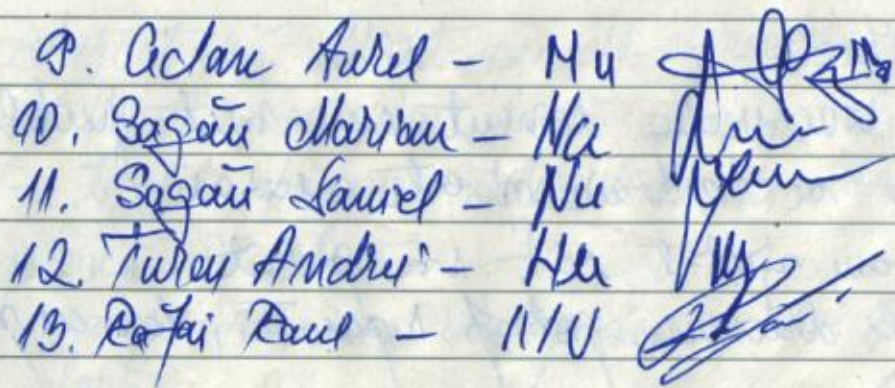 9. Adam Aurel - Nu
10. Sagău Marian - Nu
11. Sagău Daniel - Nu
12. Turcu Andrei - Nu
13. Paul - NU